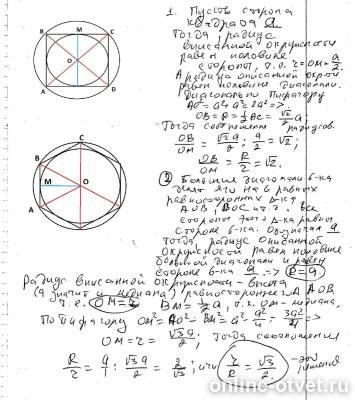 B M C
O
A D
B C
M O
A
1. Пусть сторона
квадрата a.
Тогда радиус
вписанной окружности
равен половине
стороны, т.е. r=OM=a/2
А радиус описанной окр-ти
равен половине диагонали.
Диагональ по Пифагору
OB=R=1/2 AC=√2/2 a
Тогда соотношение радиусов.
OB/OM = √2a/2 : a/2 = √2;
OB/OM = R/r = √2.
② Большие диагонали 6-ка
делят его на 6 равных
равносторонних Δ-ка
AOB, BOC и т.д. все
стороны этого Δ-ка равны
стороне 6-ка. Обозначим a
Тогда радиус описанной
окружности равен половине
большой диагонали и равен
стороне 6-ка a => R=a
Радиус вписанной окружности - высота
(а значит и медиана) равностороннего Δ AOB,
т.е. OM=r BM=a/2, т.к. OM-медиана.
По Пифагору OM²=AO²-BM²=a²-a²/4=3a²/4 =>
OM=r=√3a/2, Тогда соотношение
R/r = a/1 : √3a/2 = 2/√3; или r/R = √3/2 - это
решения
online-otvet.ru